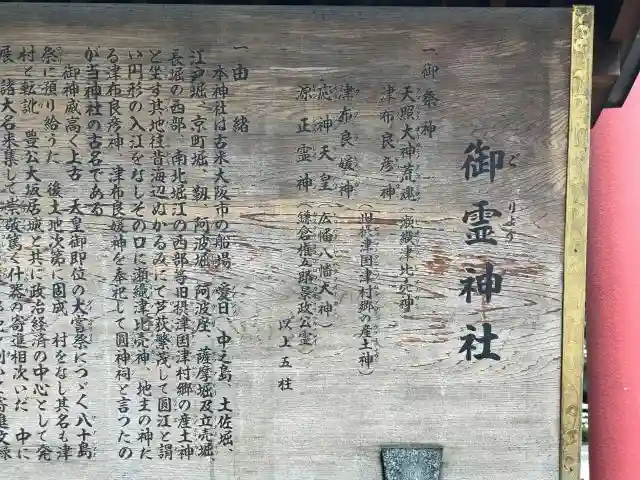 御霊神社
ごりょう
一、御祭神
天照大神荒魂 瀬織津比売神
津布良彦神
津布良媛神（旧摂津国津村郷の産土神）
応神天皇（広幡八幡大神）
源正霊神（鎌倉権五郎景政公霊）
以上五柱
一、由緒
本神社は古来大阪市の船場、愛日、中之島、土佐堀、
江戸堀、京町堀、靱、阿波堀、阿波座、薩摩堀及立売堀、
長堀の西部、南北堀江の西部等旧摂津国津村郷の産土神
と坐す其地往昔海辺ぬかるみにて芦荻繁茂して圓江と謂
い円形の入江をなしその口に瀬織津比売神、地主の神た
る津布良彦神、津布良媛神を奉祀して圓神祠と言つたの
が当神社の古名である
御神威高く上古 天皇御即位の大嘗祭につゞく八十島
祭に預り給うた 後土地次第に固成 村をなし其名も津
村と転訛 豊公大坂居城と共に政治経済の中心として発
展 諸大名来集して崇敬篤く什器の寄進相次いだ 中に